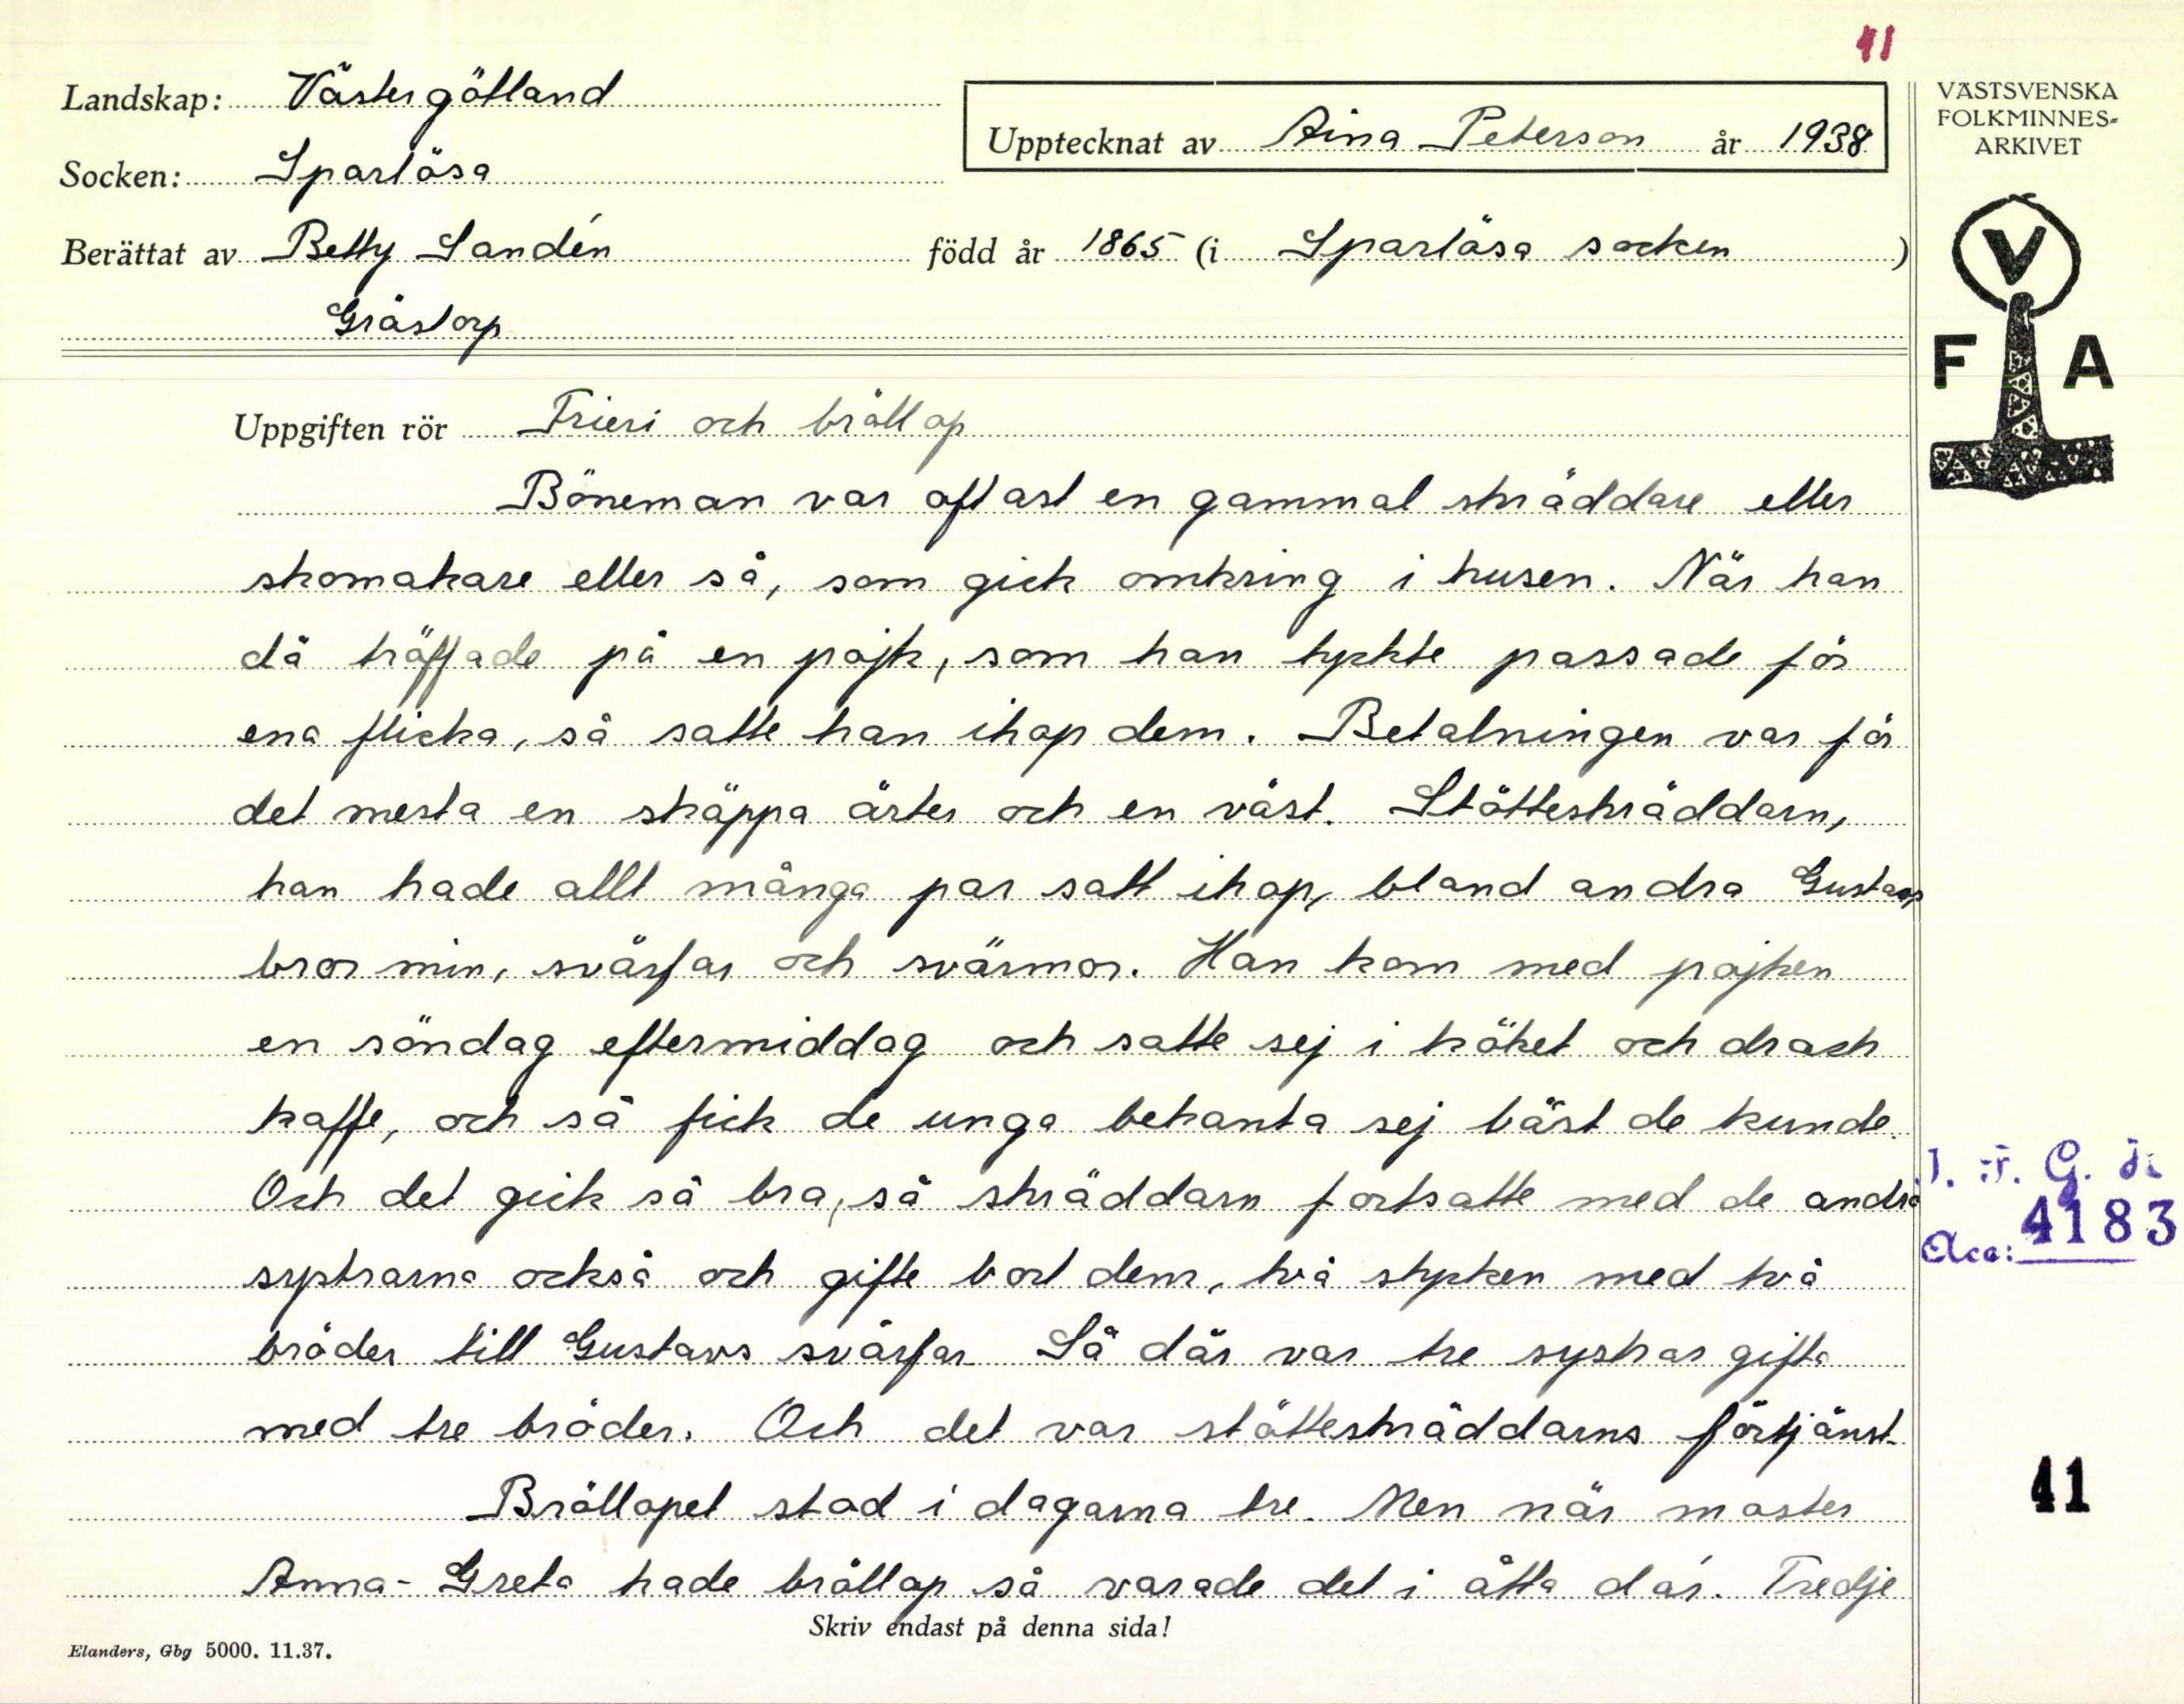 41
Landskap: Västergötland
Upptecknat av Aina Peterson år 1938
VÄSTSVENSKA
FOLKMINNES-
ARKIVET
Socken: Sparlösa
Berättat av Betty Sandén född år 1865 (i Sparlösa socken)
Grästorp
V
F A
Uppgiften rör Frieri och bröllop
Böneman var oftast en gammal skräddare eller
skomakare eller så, som gick omkring i husen. När han
då träffade på en pojk, som han tyckte passade för
ena flicka, så satte han ihop dem. Betalningen var för
det mesta en skäppa ärter och en väst. Stötteskräddarn,
han hade allt många par satt ihop, bland andra Gustavs
bror min, svärfar och svärmor. Han kom med pojken
en söndag eftermiddag och satte sej i köket och drack
kaffe, och så fick de unga bekanta sej bäst de kunde.
Och det gick så bra, så skräddarn fortsatte med de andra
systrarna också och gifte bort dem, två stycken med två
bröder till Gustavs svärfar. Så där var tre systrar gifta
med tre bröder. Och det var stötteskräddarns förtjänst.
Bröllopet stod i dagarna tre. Men när moster
Anna-Greta hade bröllop så varade det i åtta dár. Tredje
I. F. G. H.
Acc: 4183
41
Skriv endast på denna sida!
Elanders, Gbg 5000. 11.37.